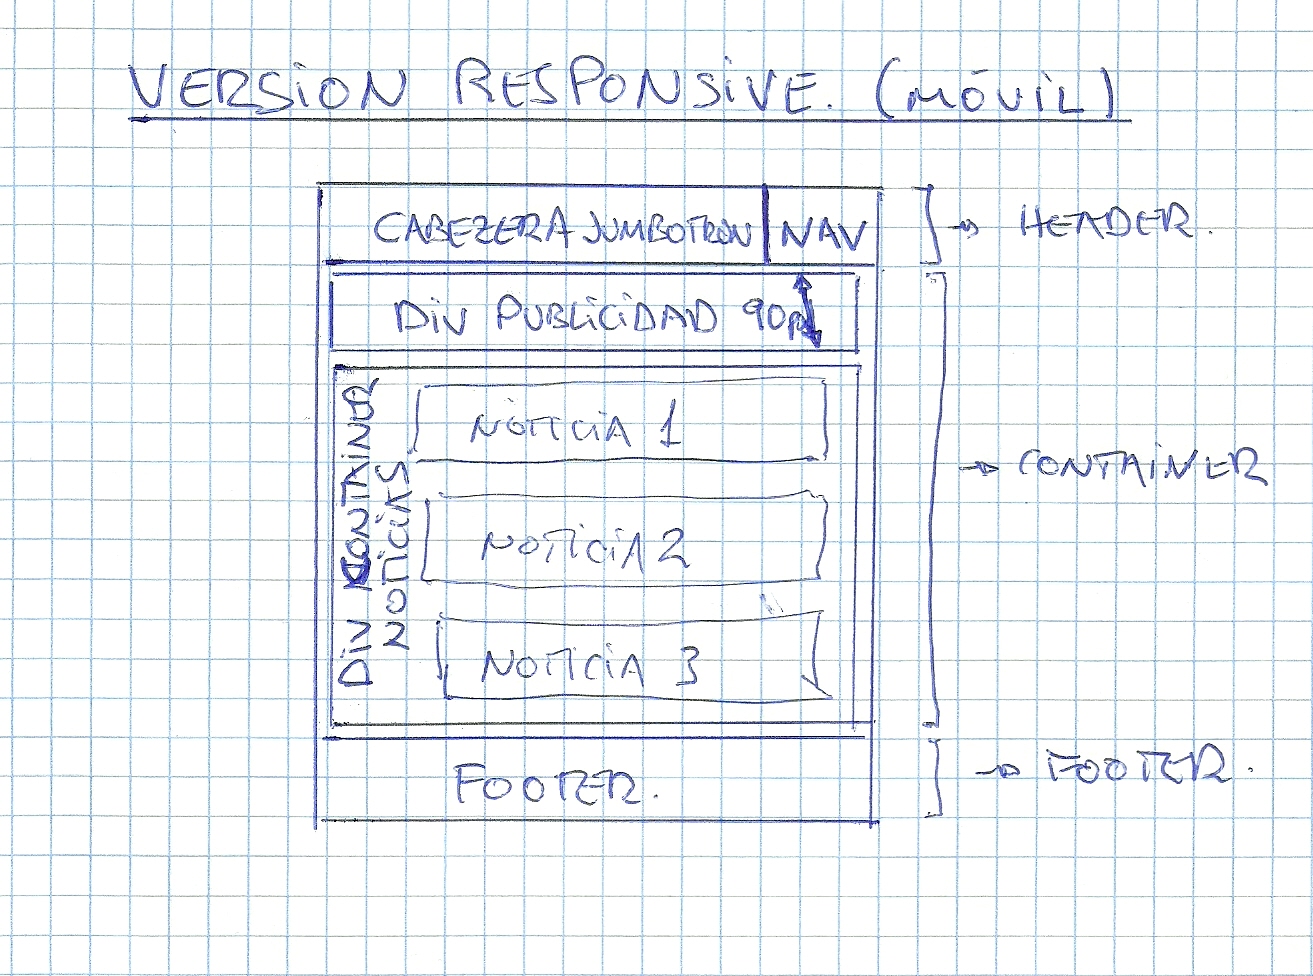 VERSION RESPONSIVE. (MÓVIL)
CABEZERA JUMBOTRON NAV
→ HEADER.
DIV PUBLICIDAD 90p
DIV CONTAINER
NOTICIAS
NOTICIA 1
→ CONTAINER
NOTICIA 2
NOTICIA 3
FOOTER.
→ FOOTER.